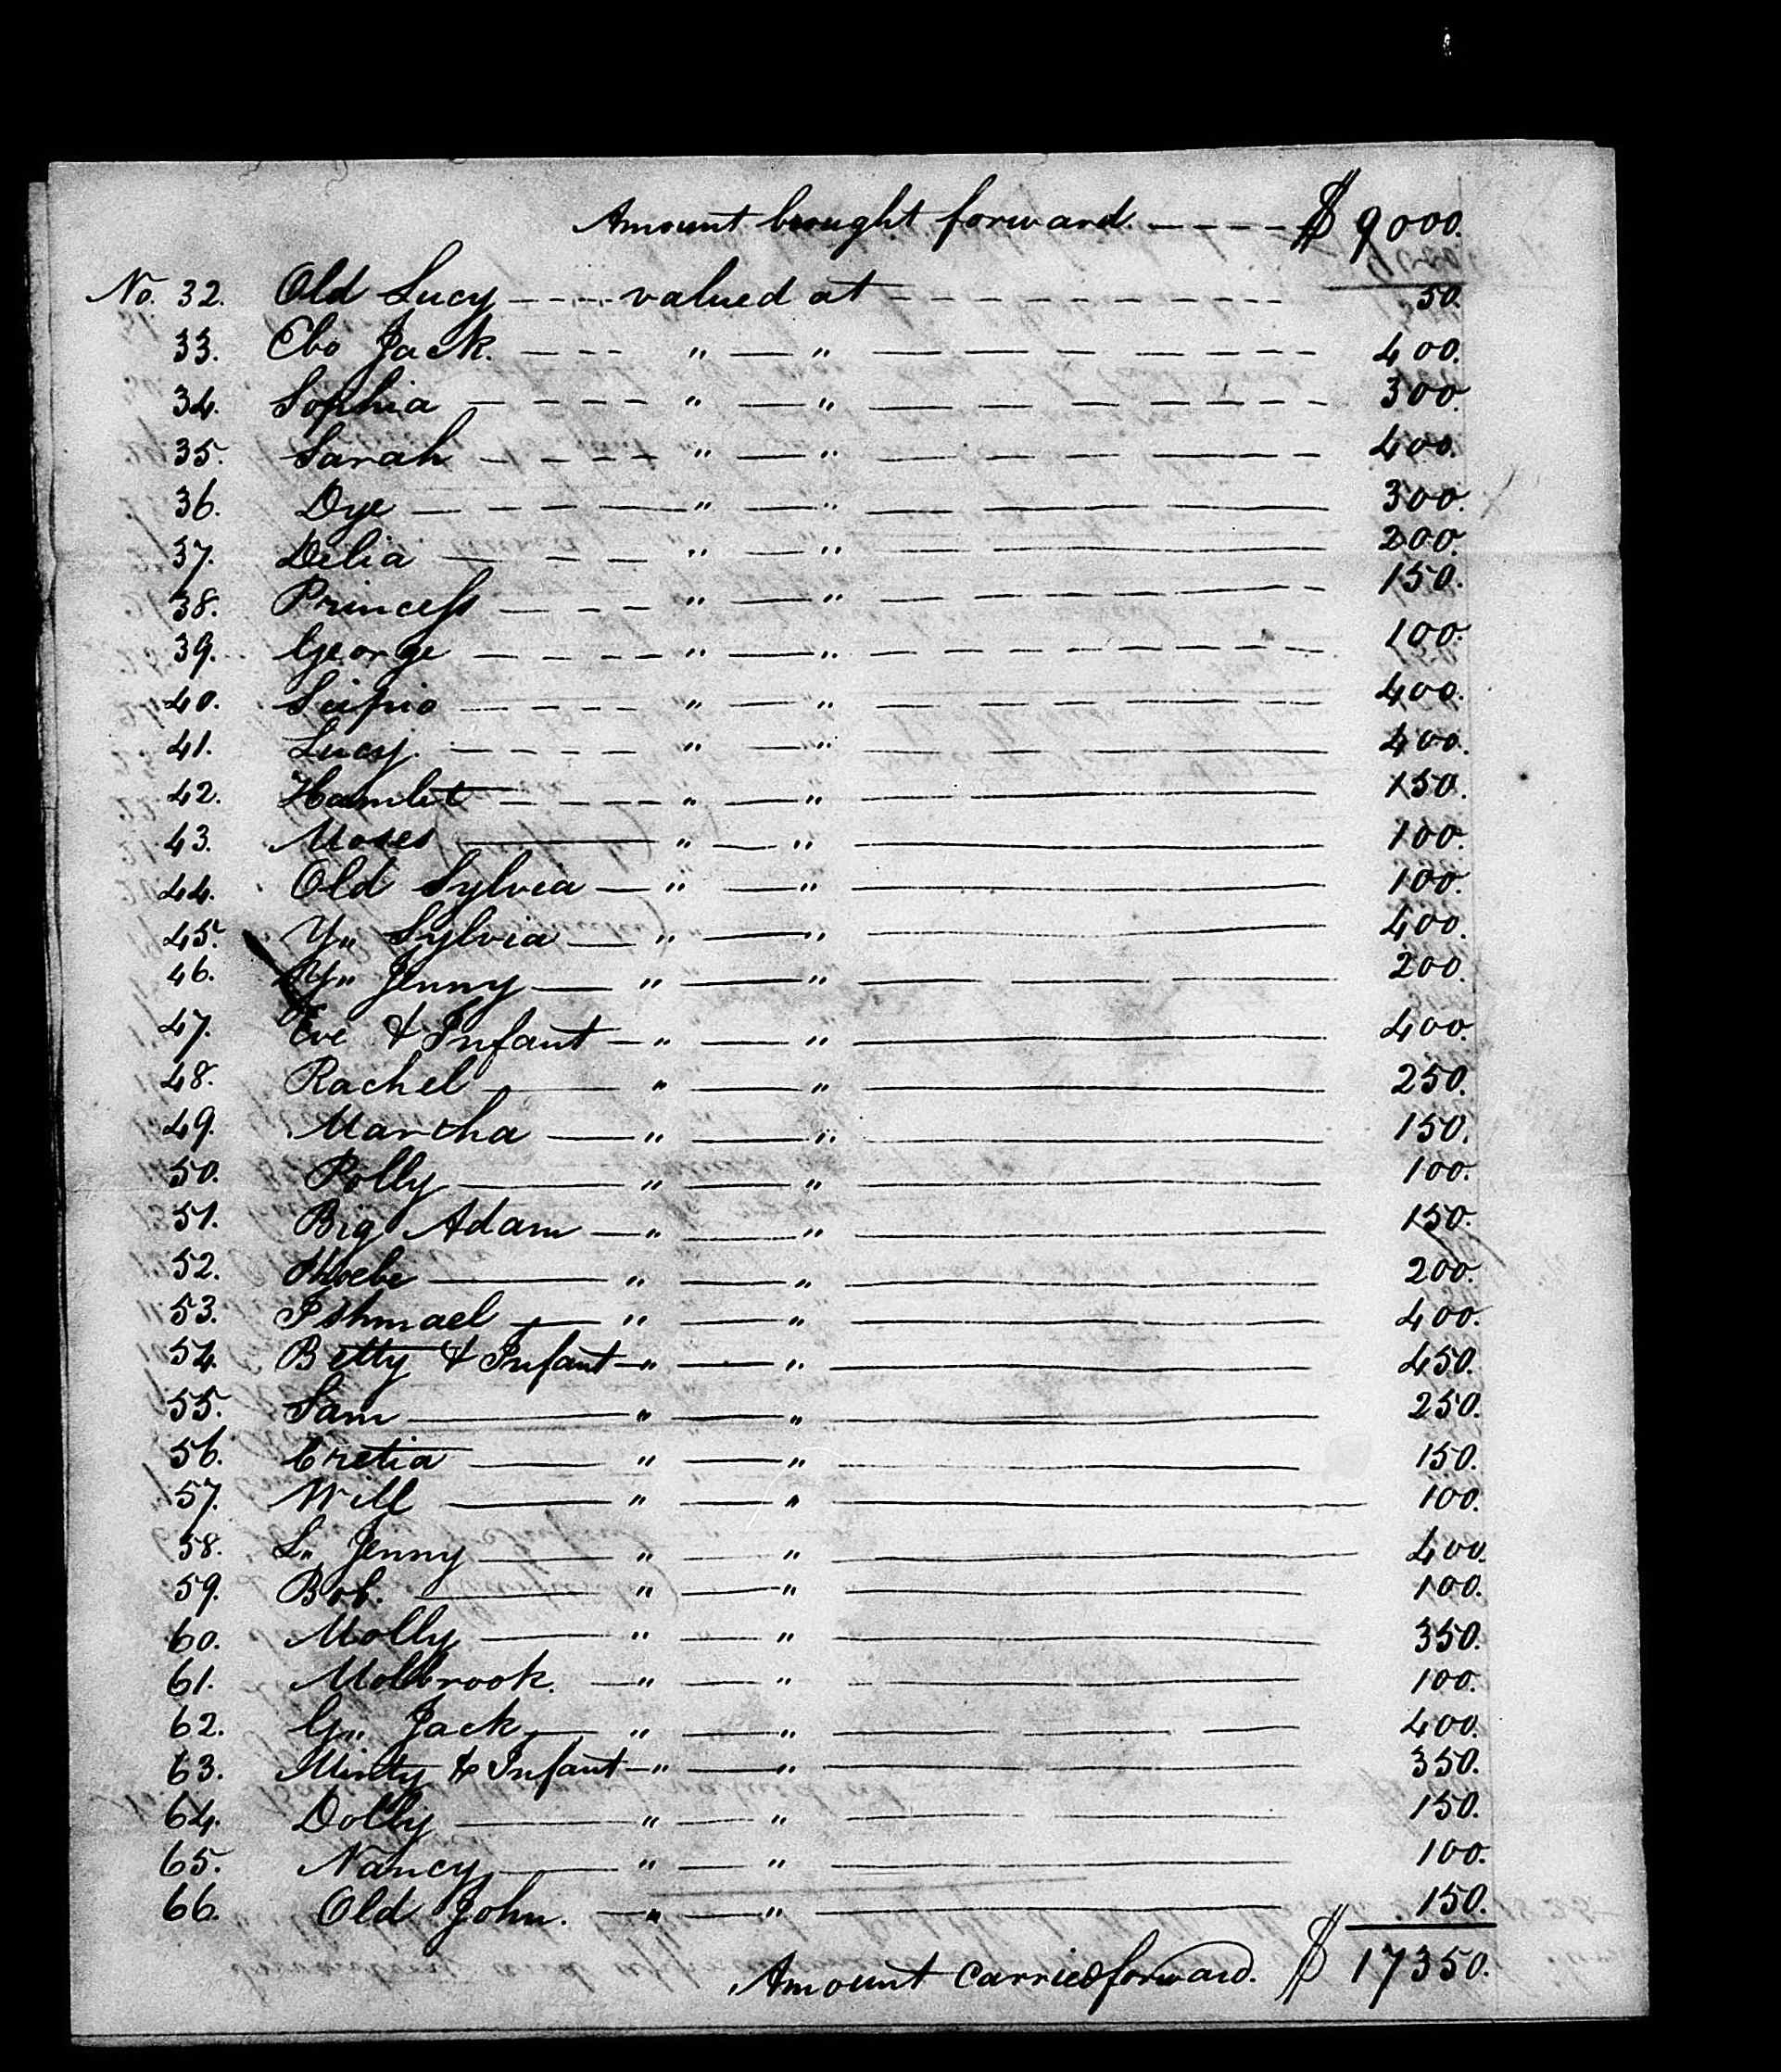 Amount brought forward. - - - - $ 9000.
No. 32. Old Lucy - - - - valued at - - - - - - - - 50.
33. Ebo Jack. - - - " — " — — — - - - - 400.
34. Sophia - - - - " — " — — — - - - - 300.
35. Sarah - - - - " — " — — — — - 400.
36. Dye — - - - — " — " — — — — 300.
37. Delia — - - — " — " — — — — 200.
38. Princess — - - - " — " - - — — — - 150.
39. George - - - - " — " - - - - - - - - 100.
40. Scipio - - - - " — " — — — — — 400.
41. Lucy. - - - - " — " — — — — 400.
42. Hamlet - - - - " — " — — — 150.
43. Moses — " — " — 100.
44. Old Sylvia — " — " — 100.
45. Y" Sylvia — " — " — 400.
46. Y" Jenny — " — " — — — 200.
47. Eve & Infant — " — " — 400.
48. Rachel — " — " — 250.
49. Martha — " — " — 150.
50. Polly — " — " — 100.
51. Big Adam — " — " — 150.
52. Phoebe — " — " — 200.
53. Ishmael — " — " — 400.
54. Betty & Infant — " — " — 450.
55. Sam — " — " — 250.
56. Cretia — " — " — 150.
57. Will — " — " — 100.
58. L" Jenny — " — " — 400.
59. Bob. — " — " — 100.
60. Molly — " — " — 350.
61. Molbrook. — " — " — 100.
62. G" Jack — " — " — — — 400.
63. Minty & Infant — " — " — 350.
64. Dolly — " — " — 150.
65. Nancy — " — " — 100.
66. Old John. — " — " — 150.
Amount carried forward. $ 17350.